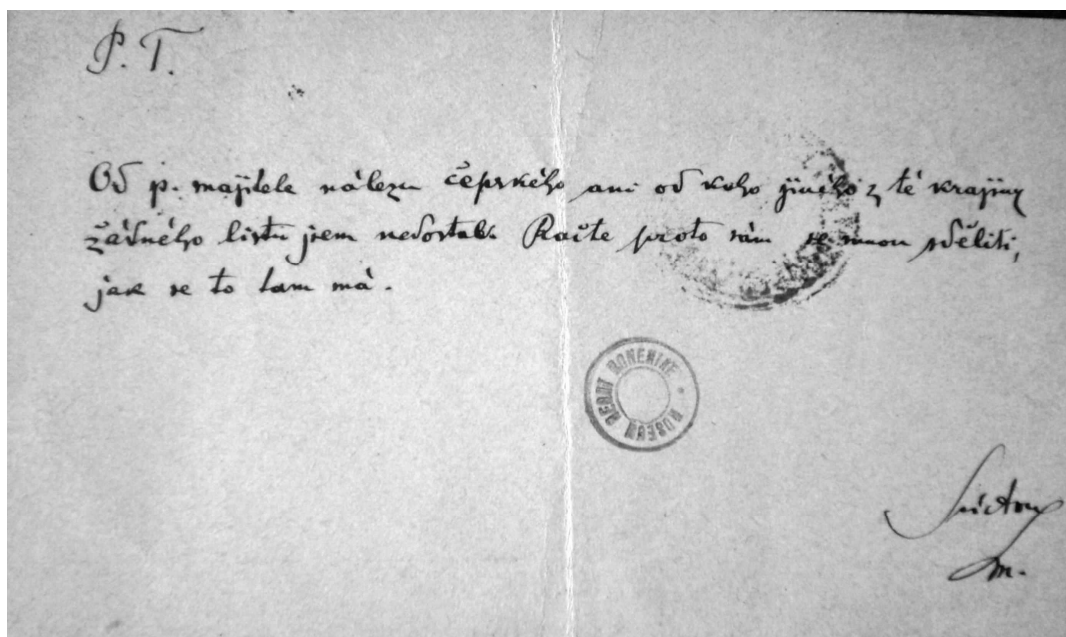 P. T.
Od p. majitele nálezu čepského ani od koho jiného z té krajiny
žádného listu jsem nedostal. Račte proto sám se mnou sděliti,
jak se to tam má.
MUSEUM REGNI BOHEMIAE